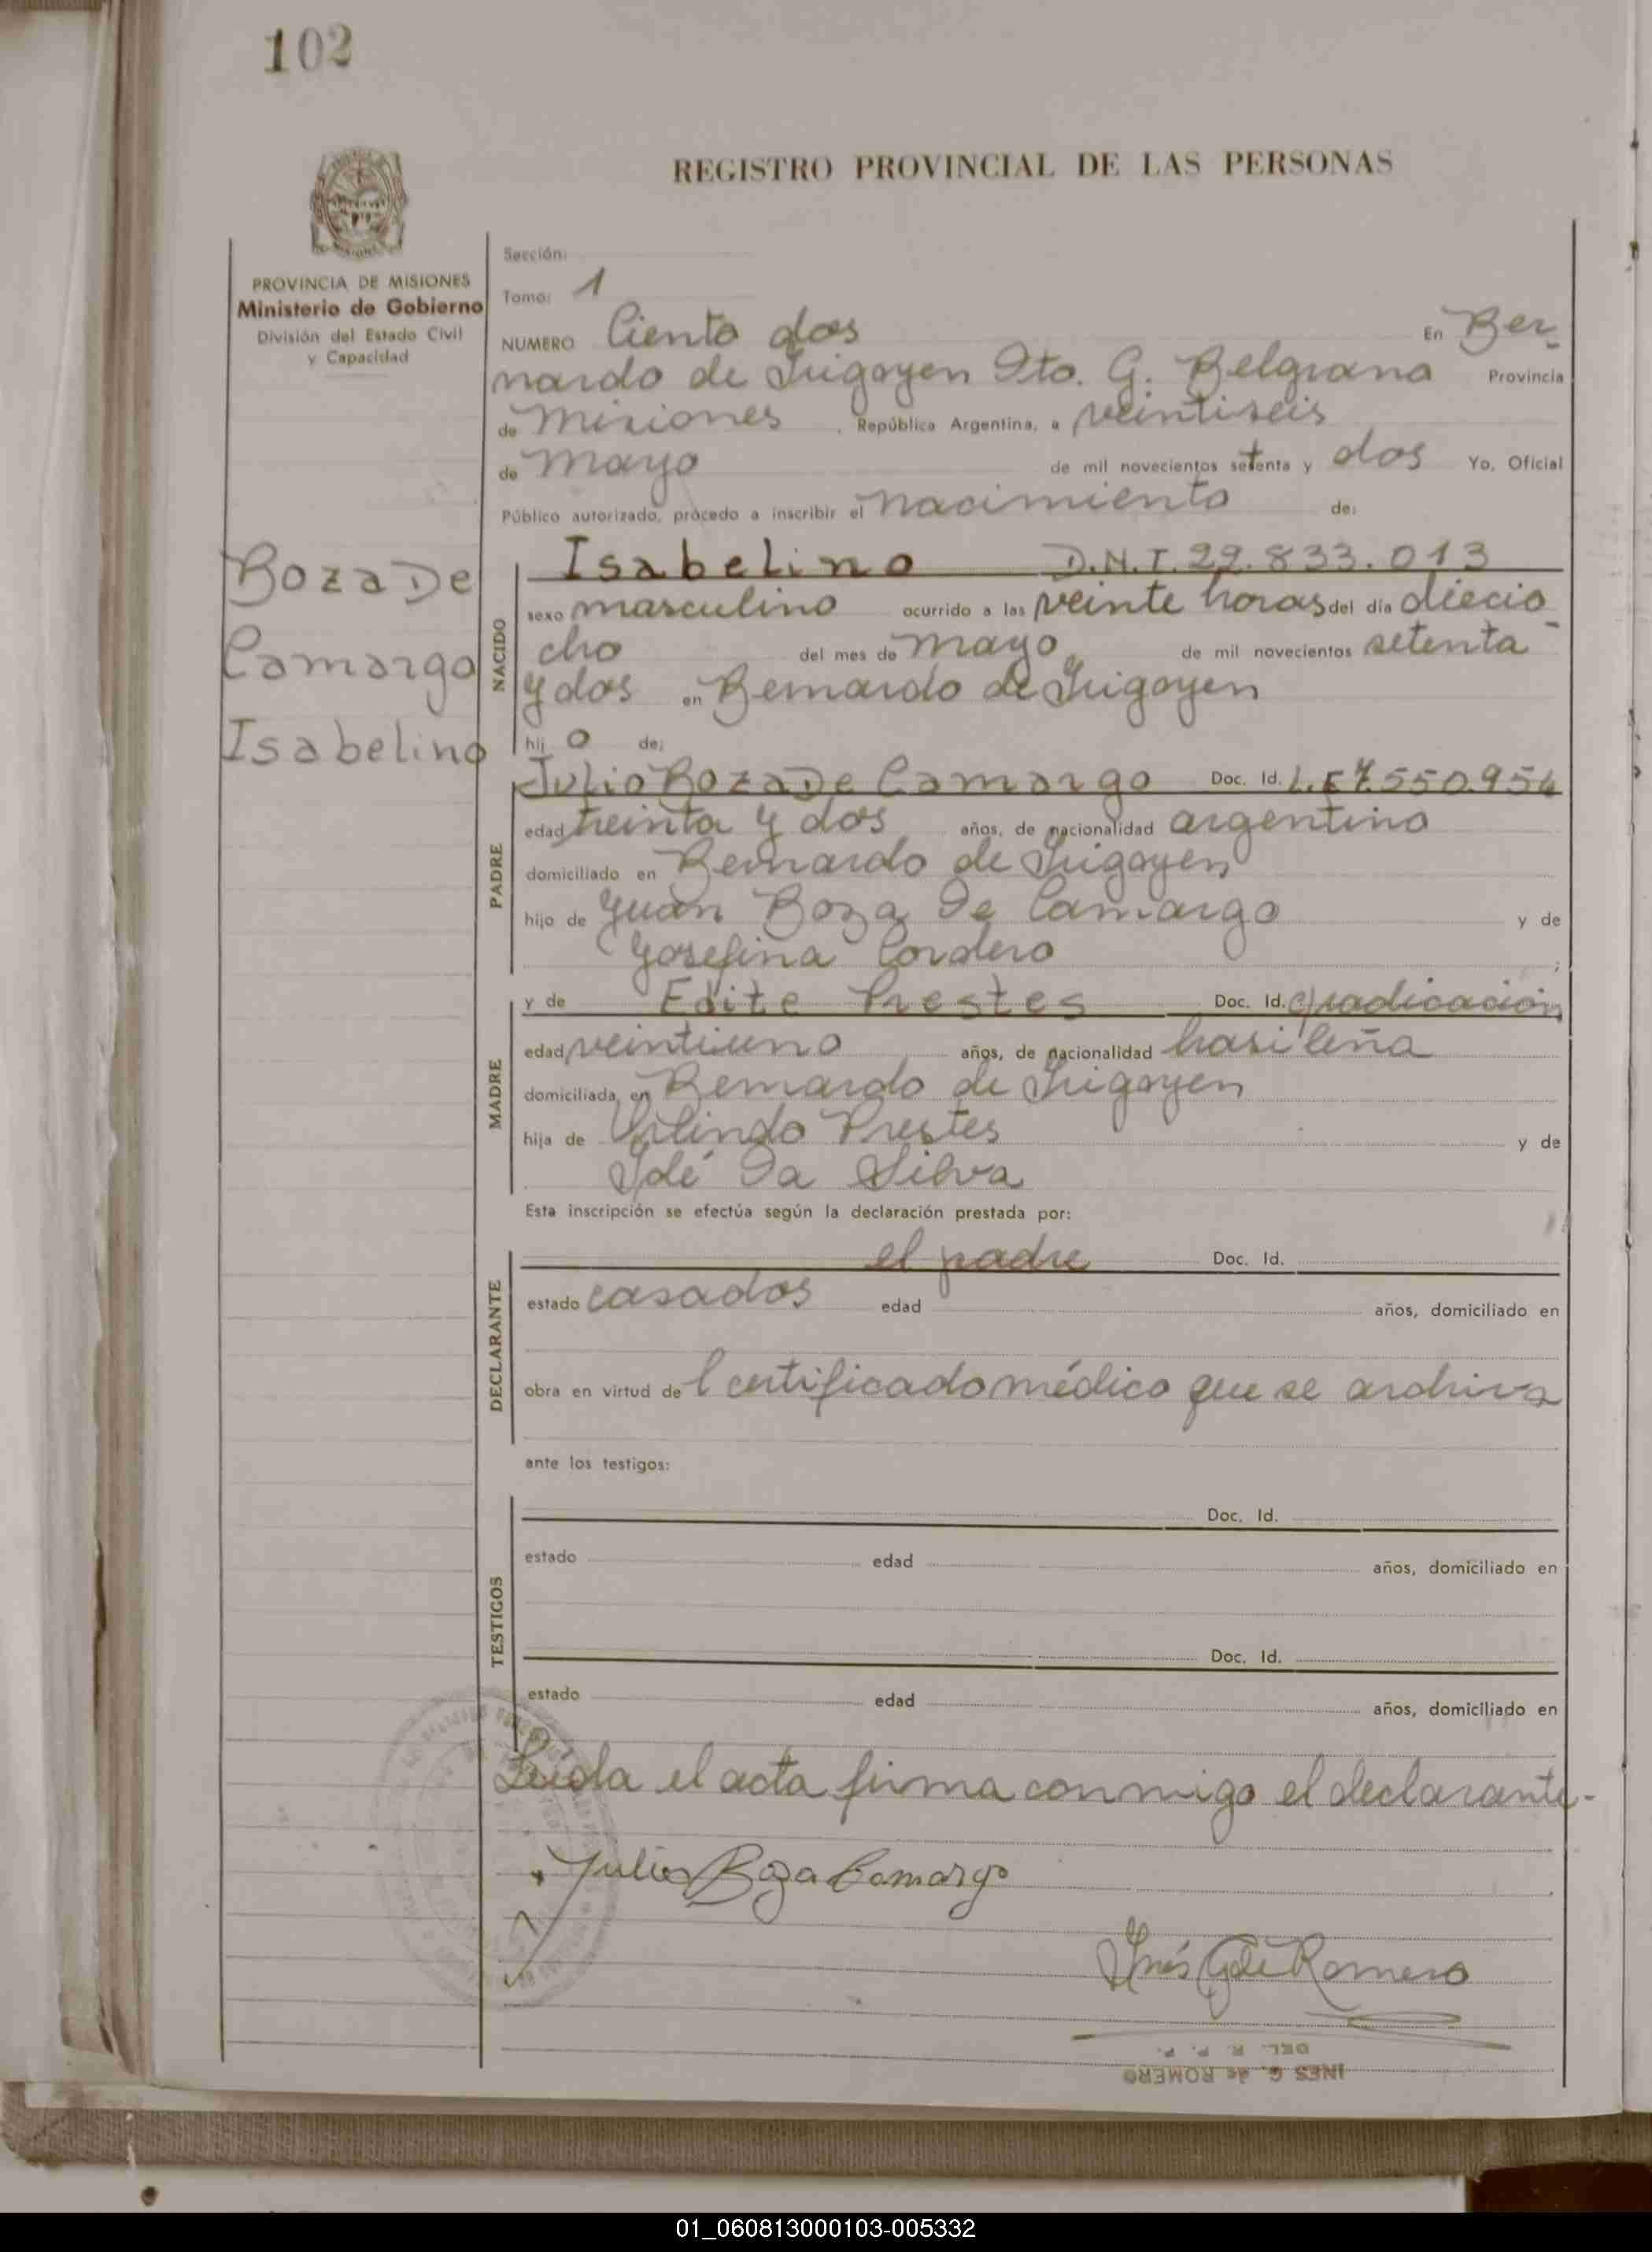 102
REGISTRO PROVINCIAL DE LAS PERSONAS
PROVINCIA DE MISIONES
Ministerio de Gobierno
División del Estado Civil
y Capacidad
Sección:
Tomo: 1
NUMERO Ciento dos En Ber-
nardo de Irigoyen Dto. G. Belgrano Provincia
de Misiones, República Argentina, a veintiseis
de Mayo de mil novecientos setenta y dos Yo, Oficial
Público autorizado, procedo a inscribir el nacimiento de:
Boza De
Camargo
Isabelino
NACIDO
Isabelino D.N.I. 22.833.013
sexo masculino ocurrido a las veinte horas del día diecio-
cho del mes de mayo de mil novecientos setenta
y dos en Bernardo de Irigoyen
hij o de:
PADRE
Julio Boza De Camargo Doc. Id. L.E 7.550.954
edad treinta y dos años, de nacionalidad argentino
domiciliado en Bernardo de Irigoyen
hijo de Juan Boza De Camargo y de
Josefina Cordero ;
MADRE
y de Edite Prestes Doc. Id. c/radicación
edad veintiuno años, de nacionalidad brasileña
domiciliada en Bernardo de Irigoyen
hija de Prestes y de
Da Silva
Esta inscripción se efectúa según la declaración prestada por:
DECLARANTE
el padre Doc. Id.
estado casados edad años, domiciliado en
obra en virtud de l certificado médico que se archiva
ante los testigos:
TESTIGOS
Doc. Id.
estado edad años, domiciliado en
Doc. Id.
estado edad años, domiciliado en
Leída el acta firma conmigo el declarante.-
Julio Boza Camargo
Inés G de Romero
INES G. de ROMERO
DEL. R. P. P.
01_060813000103-005332